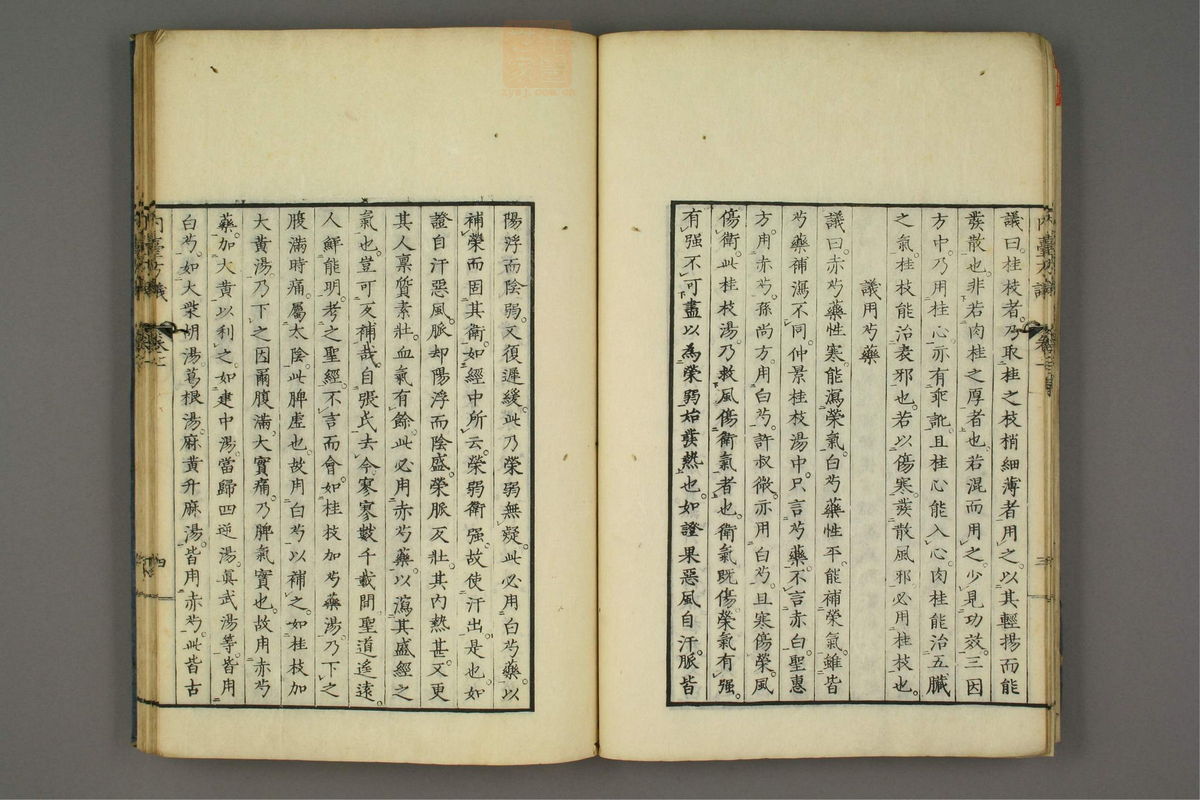 議曰。桂枝者。乃取桂之枝梢細薄者用之。以其輕揚而能
發散也。非若肉桂之厚者也。若混而用之。少見功效。三因
方中。乃用桂心。亦有乖訛。且桂心能入心。肉桂能治五臟
之氣。桂枝能治表邪也。若以傷寒。發散風邪必用桂枝也。
議用芍藥
議曰。赤芍藥性寒。能瀉榮氣。白芍藥性平。能補榮氣。雖皆
芍藥補瀉不同。仲景桂枝湯中。只言芍藥。不言赤白。聖惠
方。用赤芍。孫尚方。用白芍。許叔微。亦用白芍。且寒傷榮。風
傷衛。此桂枝湯。乃救風傷衛氣者也。衛氣既傷榮氣有強。
有強不可盡以為榮弱始發熱也。如證果惡風自汗。脈皆
陽浮而陰弱。又復遲緩。此乃榮弱無疑。此必用白芍藥。以
補榮而固其衛。如經中所云。榮弱衛強。故使汗出是也。如
證自汗惡風。脈却陽浮而陰盛。榮脈反壯。其內熱甚。又更
其人稟質素壯。血氣有餘。此必用赤芍藥。以瀉其盛經之
氣也。豈可反補哉。自張氏去今。寥寥數千載間。聖道遙遠。
人鮮能明。考之聖經。不言而會。如桂枝加芍藥湯。乃下之
腹滿時痛。屬太陰。此脾虛也。故用白芍以補之。如桂枝加
大黃湯。乃下之因爾腹滿。大實痛。乃脾氣實也。故用赤芍
藥。加大黃以利之。如建中湯。當歸四逆湯。眞武湯等。皆用
白芍。如大柴胡湯。葛根湯。麻黃升麻湯。皆用赤芍。此皆古